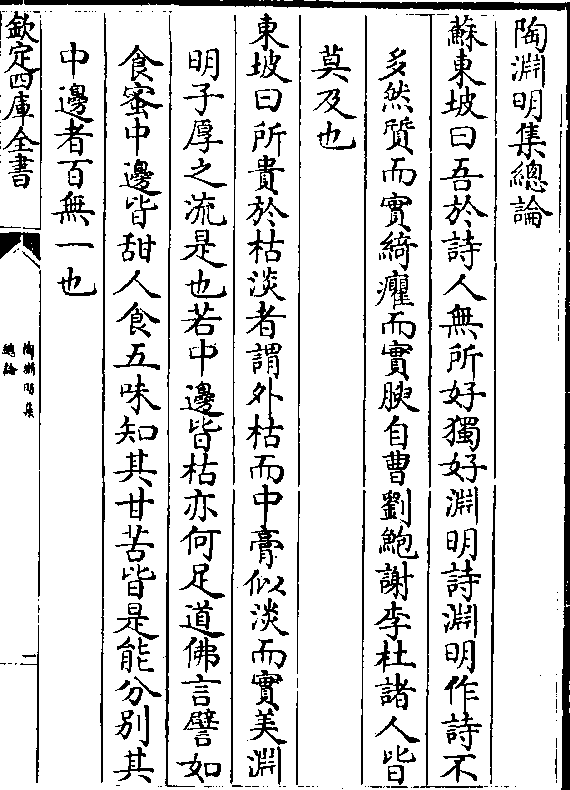 陶淵明集總論
蘇東坡曰吾於詩人無所好獨好淵明詩淵明作詩不
多然質而實綺癯而實腴自曹劉鮑謝李杜諸人皆
莫及也
東坡曰所貴於枯淡者謂外枯而中膏似淡而實美淵
明子厚之流是也若中邊皆枯亦何足道佛言譬如
食蜜中邊皆甜人食五味知其甘苦皆是能分別其
中邊者百無一也
欽定四庫全書
陶淵明集
總論
一